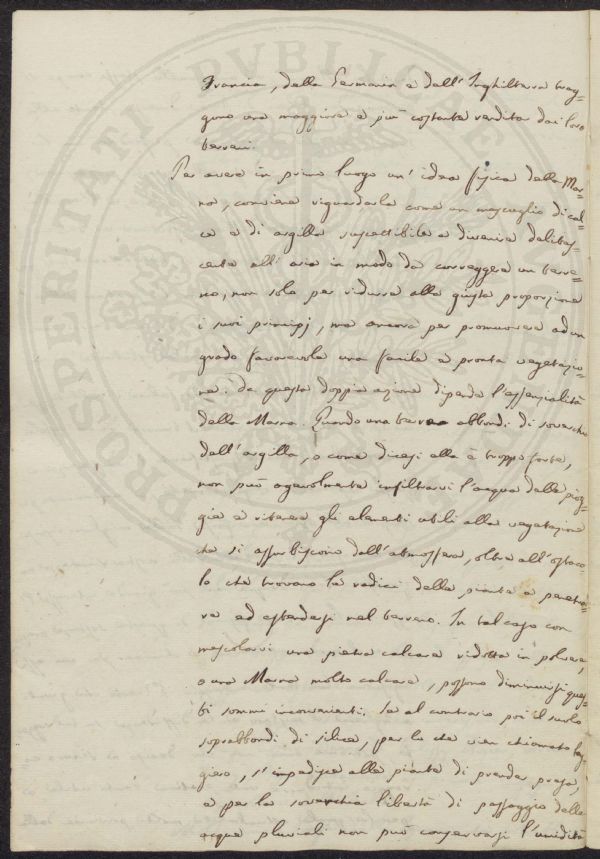 Francia, della Germania e dell'Inghilterra trag=
gono una maggiore e più costante rendita dai loro
terreni.
Per avere in primo luogo un'idea fisica della Mar=
na, conviene riguardarla come un mescuglio di cal=
ce e di argilla suscettibile a divenire delites=
cente all'aria in modo da correggere un terre=
no, non solo per ridurre alla giusta proporzione
i suoi principj, ma ancora per promuovere ad un
grado favorevole una facile e pronta vegetazio=
ne. Da questa doppia azione dipende l'essenzialità
della Marna. Quando una terra abbondi di soverchio
dell'argilla, o come dicesi ella è troppo forte,
non può agevolmente infiltrarvi l'acqua delle piog=
gie e ritenere gli elementi utili alla vegetazione
che si assorbiscono dall'atmosfera, oltre all'ostaco=
lo che trovano le radici delle piante a penetra=
re ed estendersi nel terreno. In tal caso con
mescolarvi una pietra calcare ridotta in polvere,
o una Marna molto calcare, possono diminuirsi ques=
ti sommi inconvenienti. Se al contrario poi il suolo
soprabbondi di silice, per lo che vien chiamato leg=
giero, s'impedisce alle piante di prender presa,
e per la soverchia libertà di passaggio delle
acque pluviali non può conservarsi l'umidità
PROSPERITATI PVBLICAE